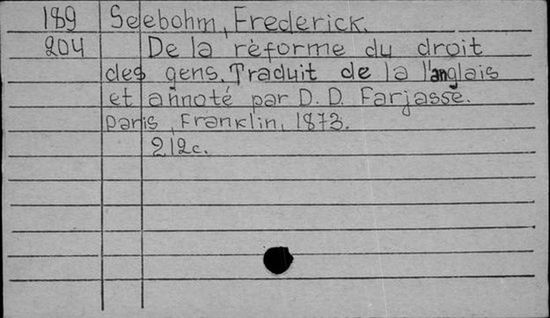 189 Seebohm, Frederick.
204 De la réforme du droit
des gens. Traduit de la l'anglais
et annoté par D. D. Farjasse.
Paris, Franklin, 1873.
212c.